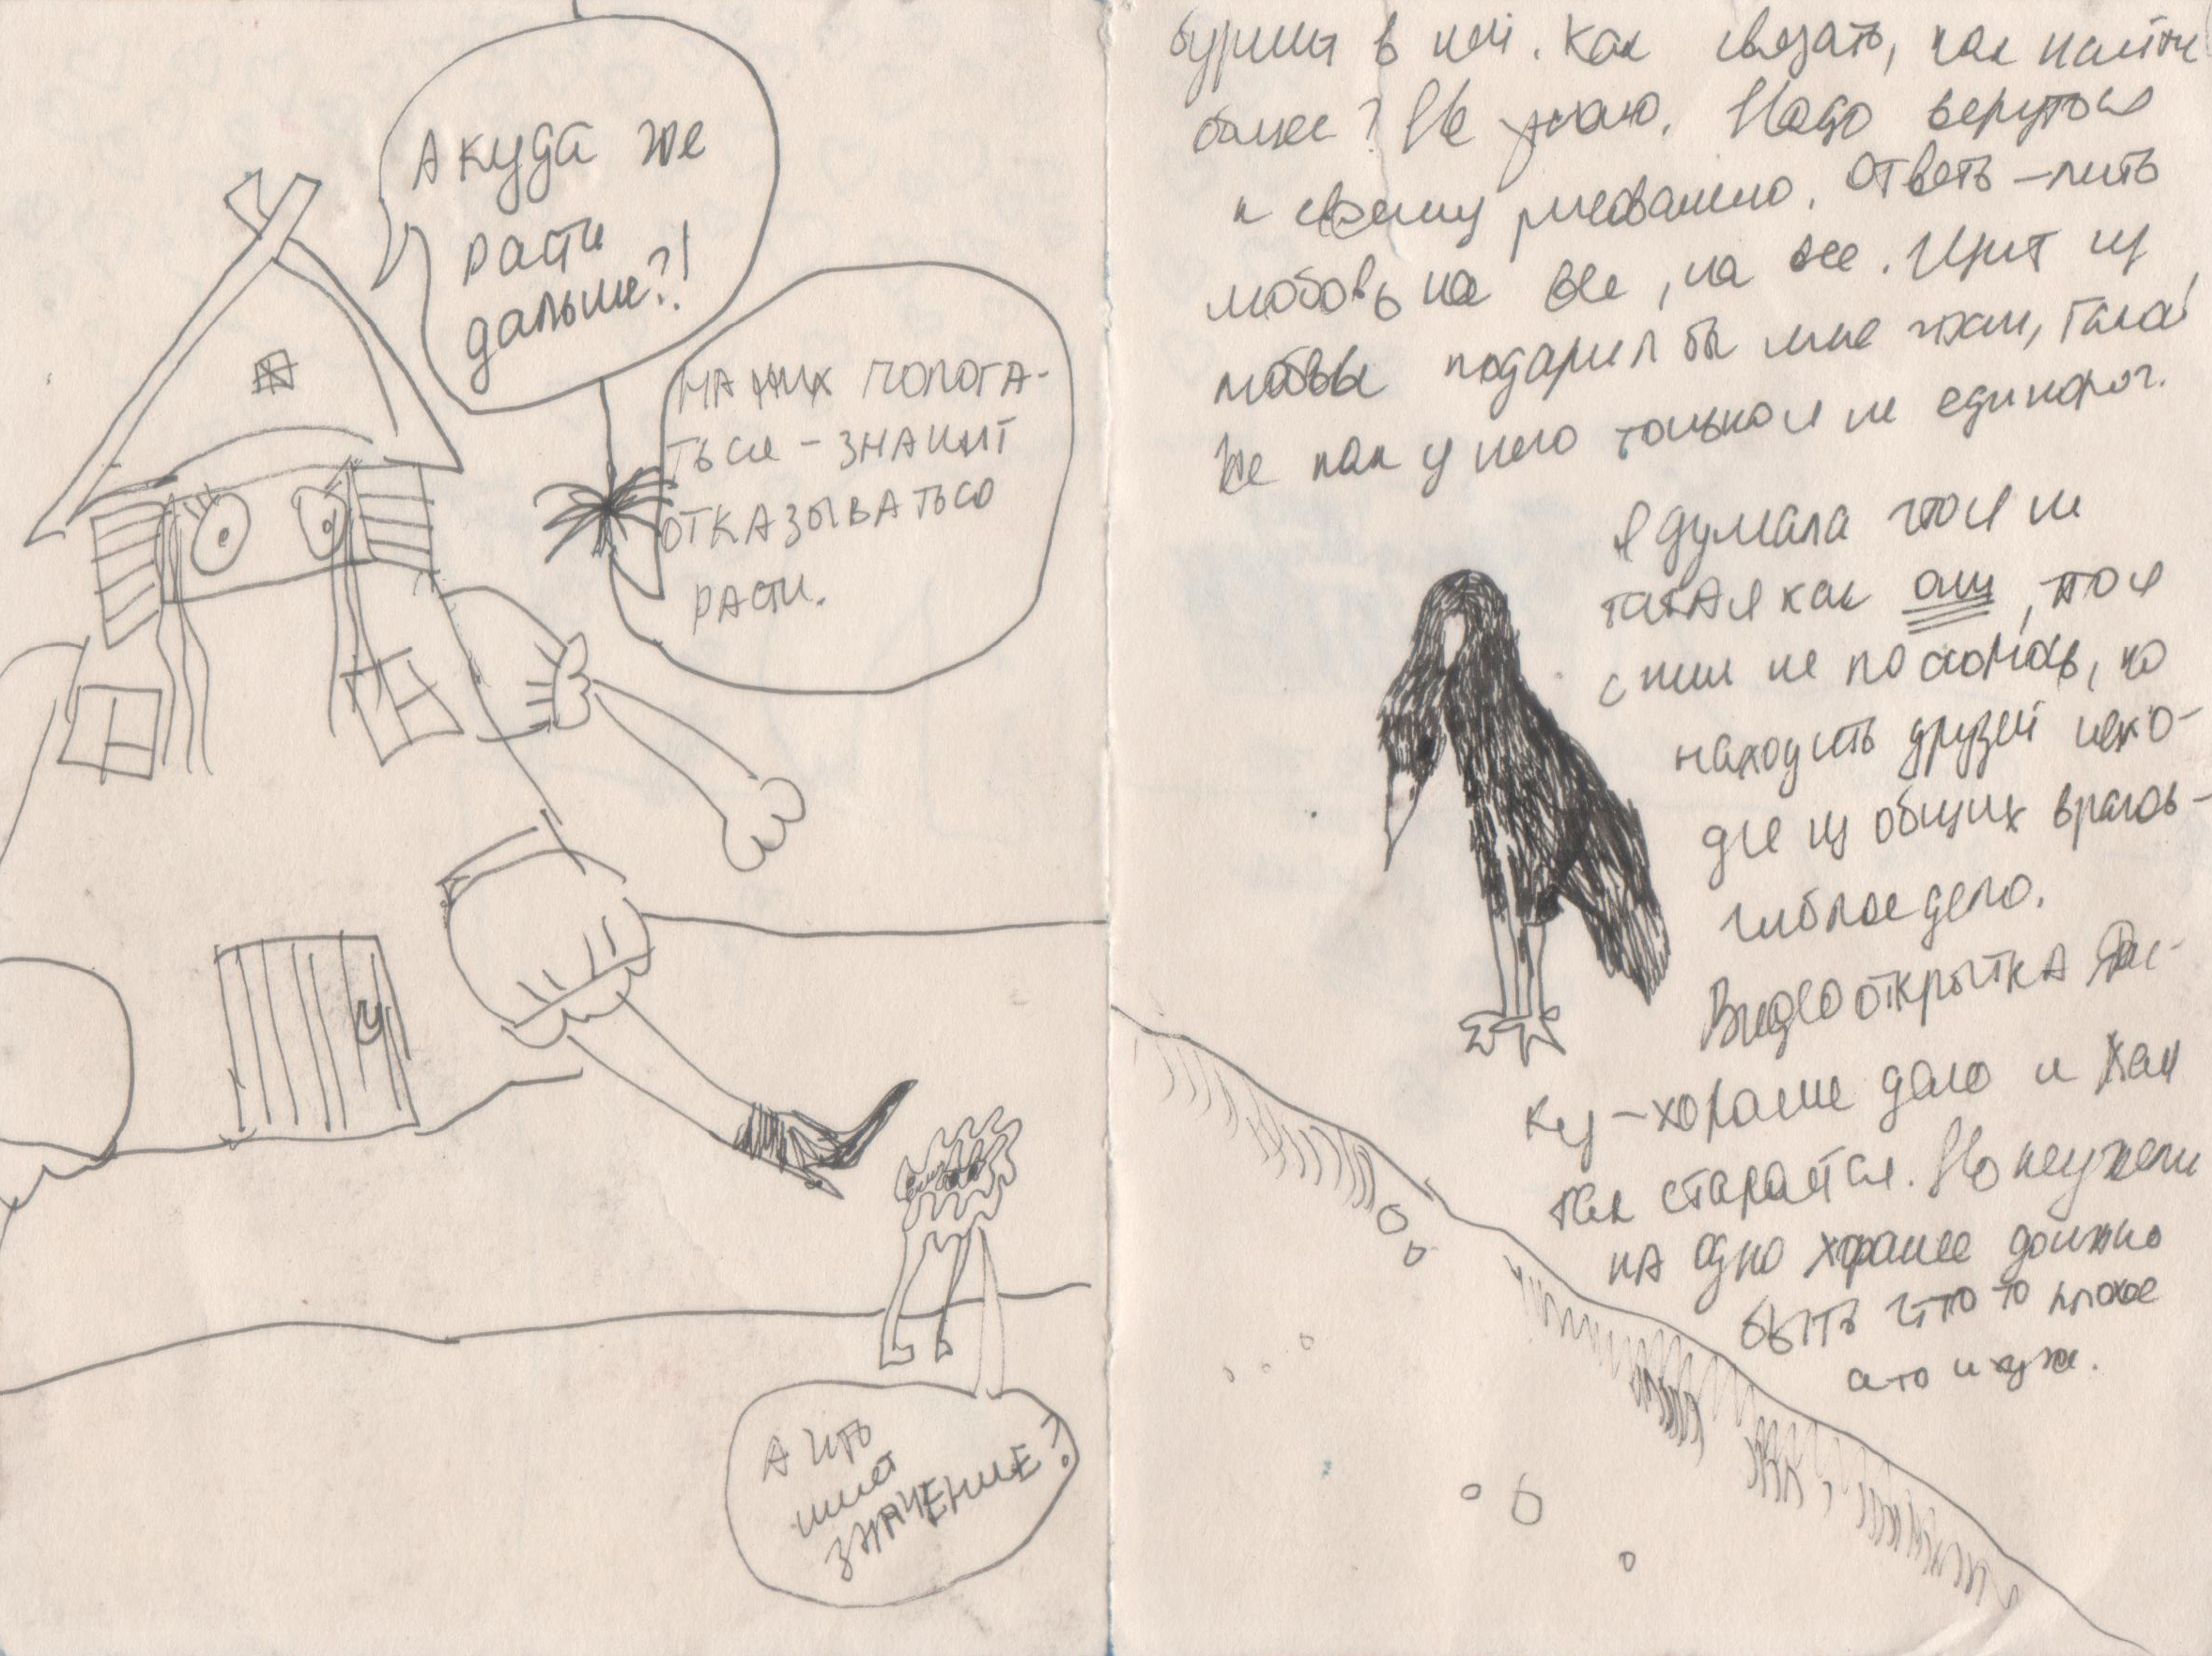 А куда же
расти
дальше?!
на них полога-
ться – значит
отказываться
расти.
А что
имеет
значение?
в ней. Как связать, как найти
более? Не знаю. Надо вернуться
к своему рисованию. Ответь – лить
любовь на все, на все. Щит из
любви подарил бы мне Ихан,
же как у него только я не единорог.
Я думала что я не
такая как они, что я
с ним не посмеюсь, но
находить друзей нехо-
дье из общих врагов –
гиблое дело.
Видеооткрытка Яши-
ку – хорошее дело и Хан
так старается. Но неужели
на одно хорошее должно
быть что то плохое
а то и хуже.